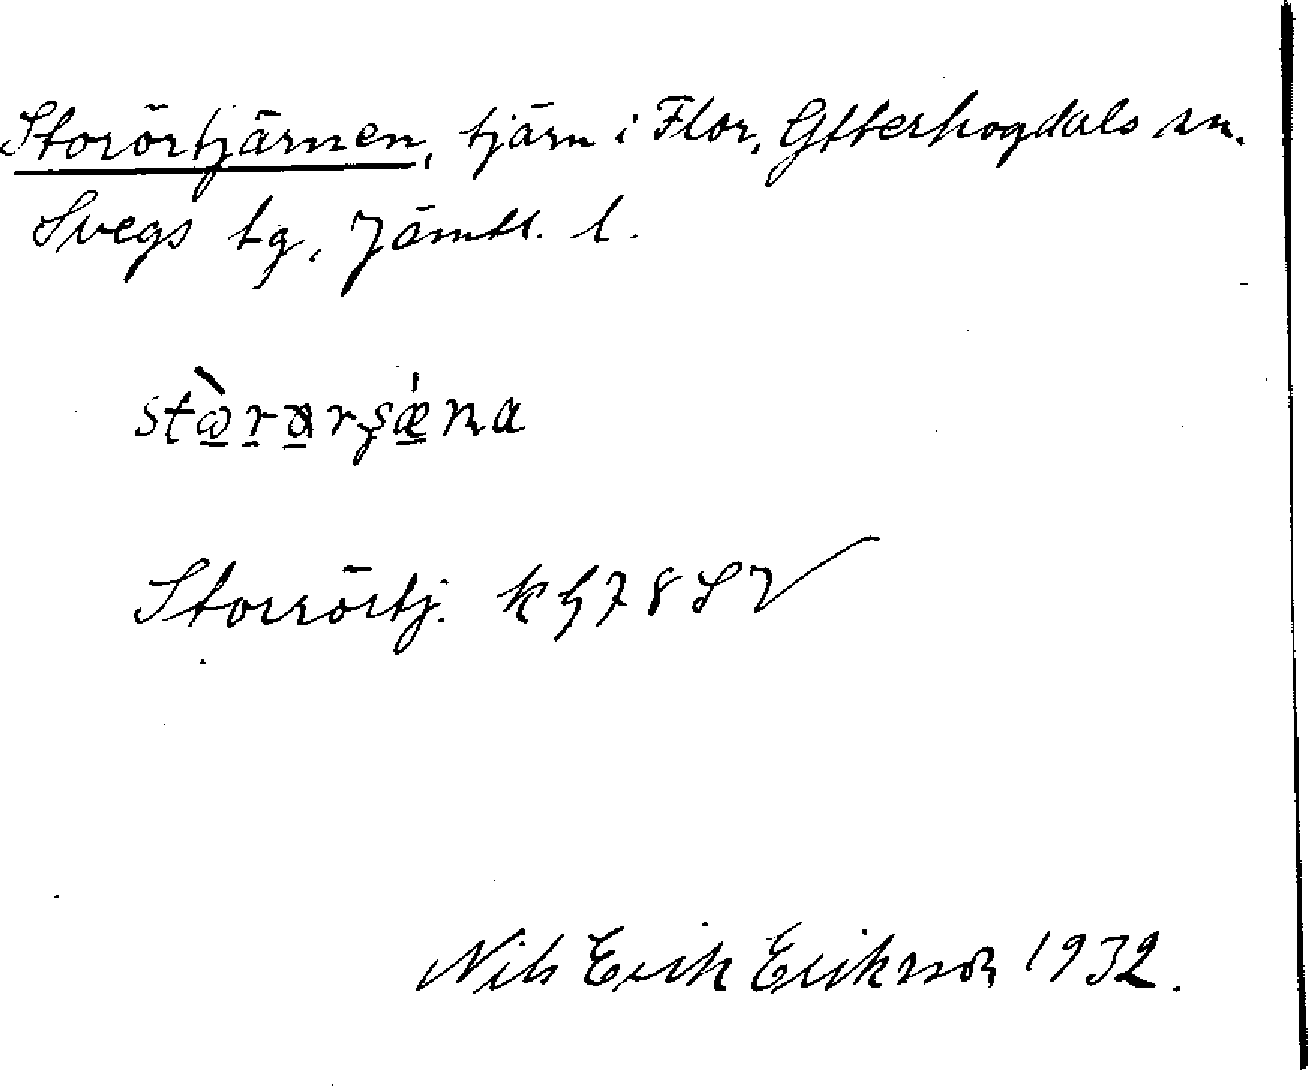 Storörtjärnen, tjärn i Flor, Ytterhogdals sn.
Svegs tg, Jämtl. l.
stɷ̀ra̱rʂǽɳa
Storrörtj. k 578 SV
Nils Erik Eriksson 1932.